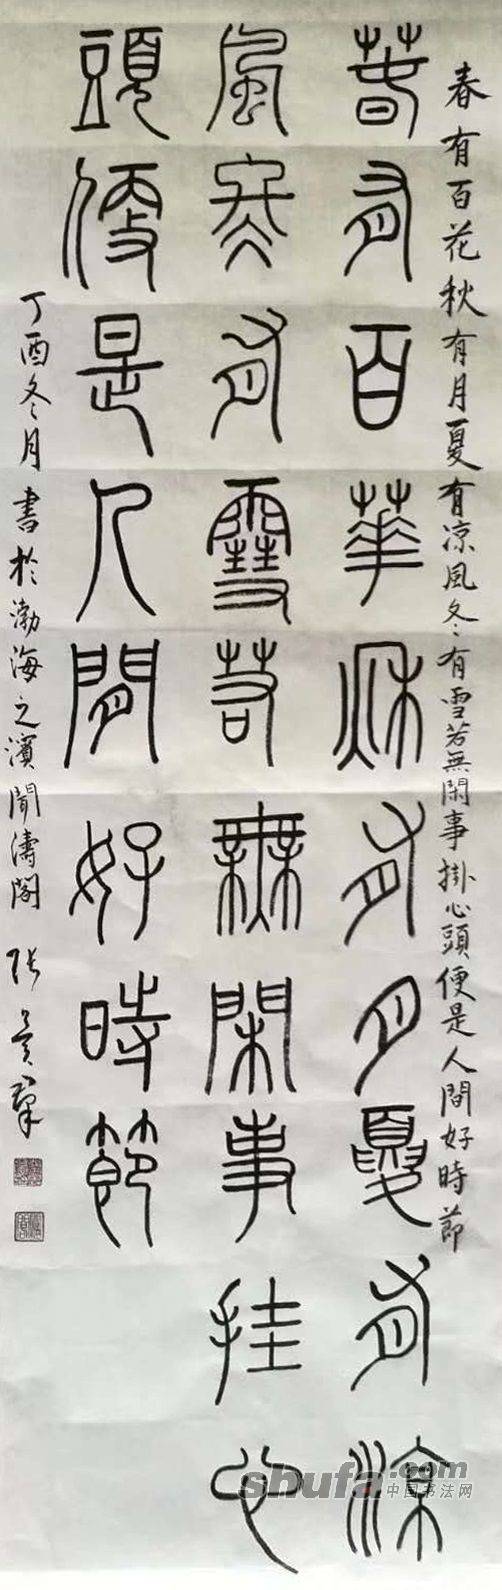 春有百花秋有月夏有凉風冬有雪若無閑事掛心頭便是人間好時節
春有百華秋有月夏有涼
風冬有雪若無閑事挂心
頭便是人間好時節
丁酉冬月書於渤海之濱聞濤閣
shufa.com
中国书法网